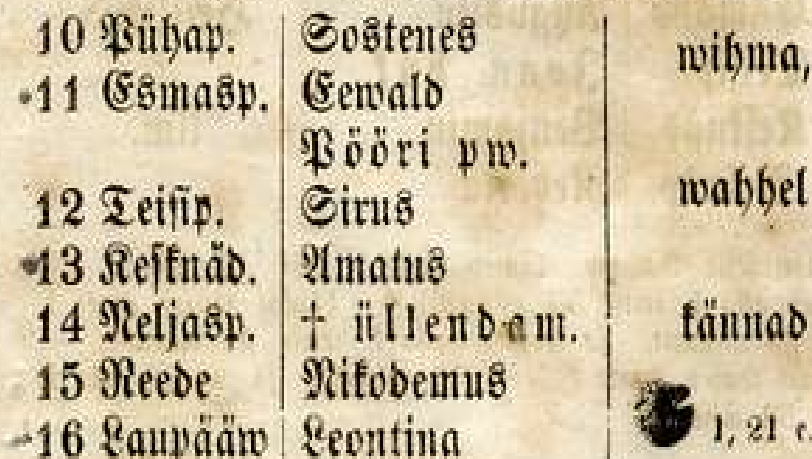 10 Pühap. Sostenes
wihma,
11 Esmasp. Eewald
Pööri pw.
12 Teisip. Sirus
wahhel
13 Kesknäd. Amatus
14 Neljasp. † üllendam.
kännad
15 Reede Nikodemus
16 Laupääw Leontina
1, 21 e.